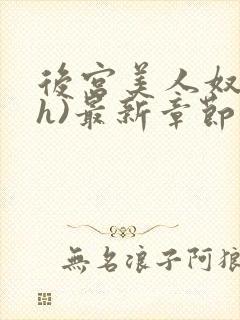 後宮美人奴
h)最新章節
無名浪子阿狼